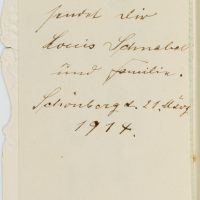 sendet Dir
Louis Schnabel
und Familie.
Schönberg d. 21 März
1914.